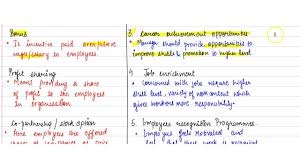 Bonus
Is incentive paid over & above
wages/salary to employees
Profit sharing
Means providing a share
of profit to the employees
in organisation
Co-partnership / stock option
Here employees are offered
3. Career advancement opportunities
Manager should provide opportunities to
improve skills & promotion to higher level
4. Job enrichment
concerned with jobs require higher
skill level, variety of work content which
gives workers more responsibility.
5. Employees recognition Programmes
Employees feels motivated and
feel that their work is